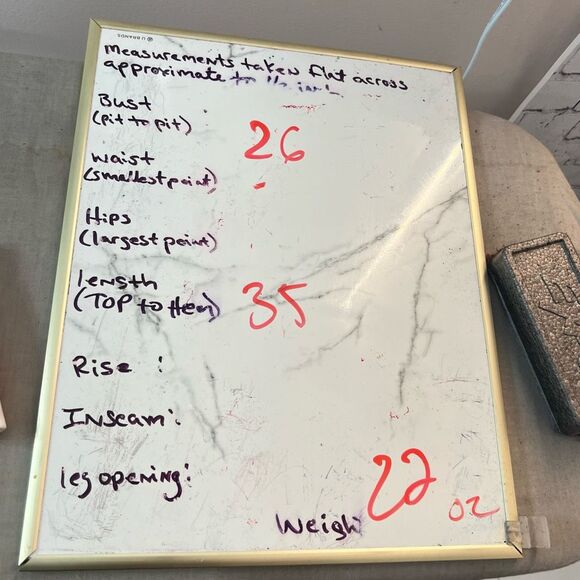 U BRANDS
Measurements taken flat across
approximate to
Bust
(pit to pit)
26
waist
(smallest point)
-
Hips
(largest point)
length
(TOP to Hem)
35
Rise :
Inseam:
leg opening:
22
oz
Weigh